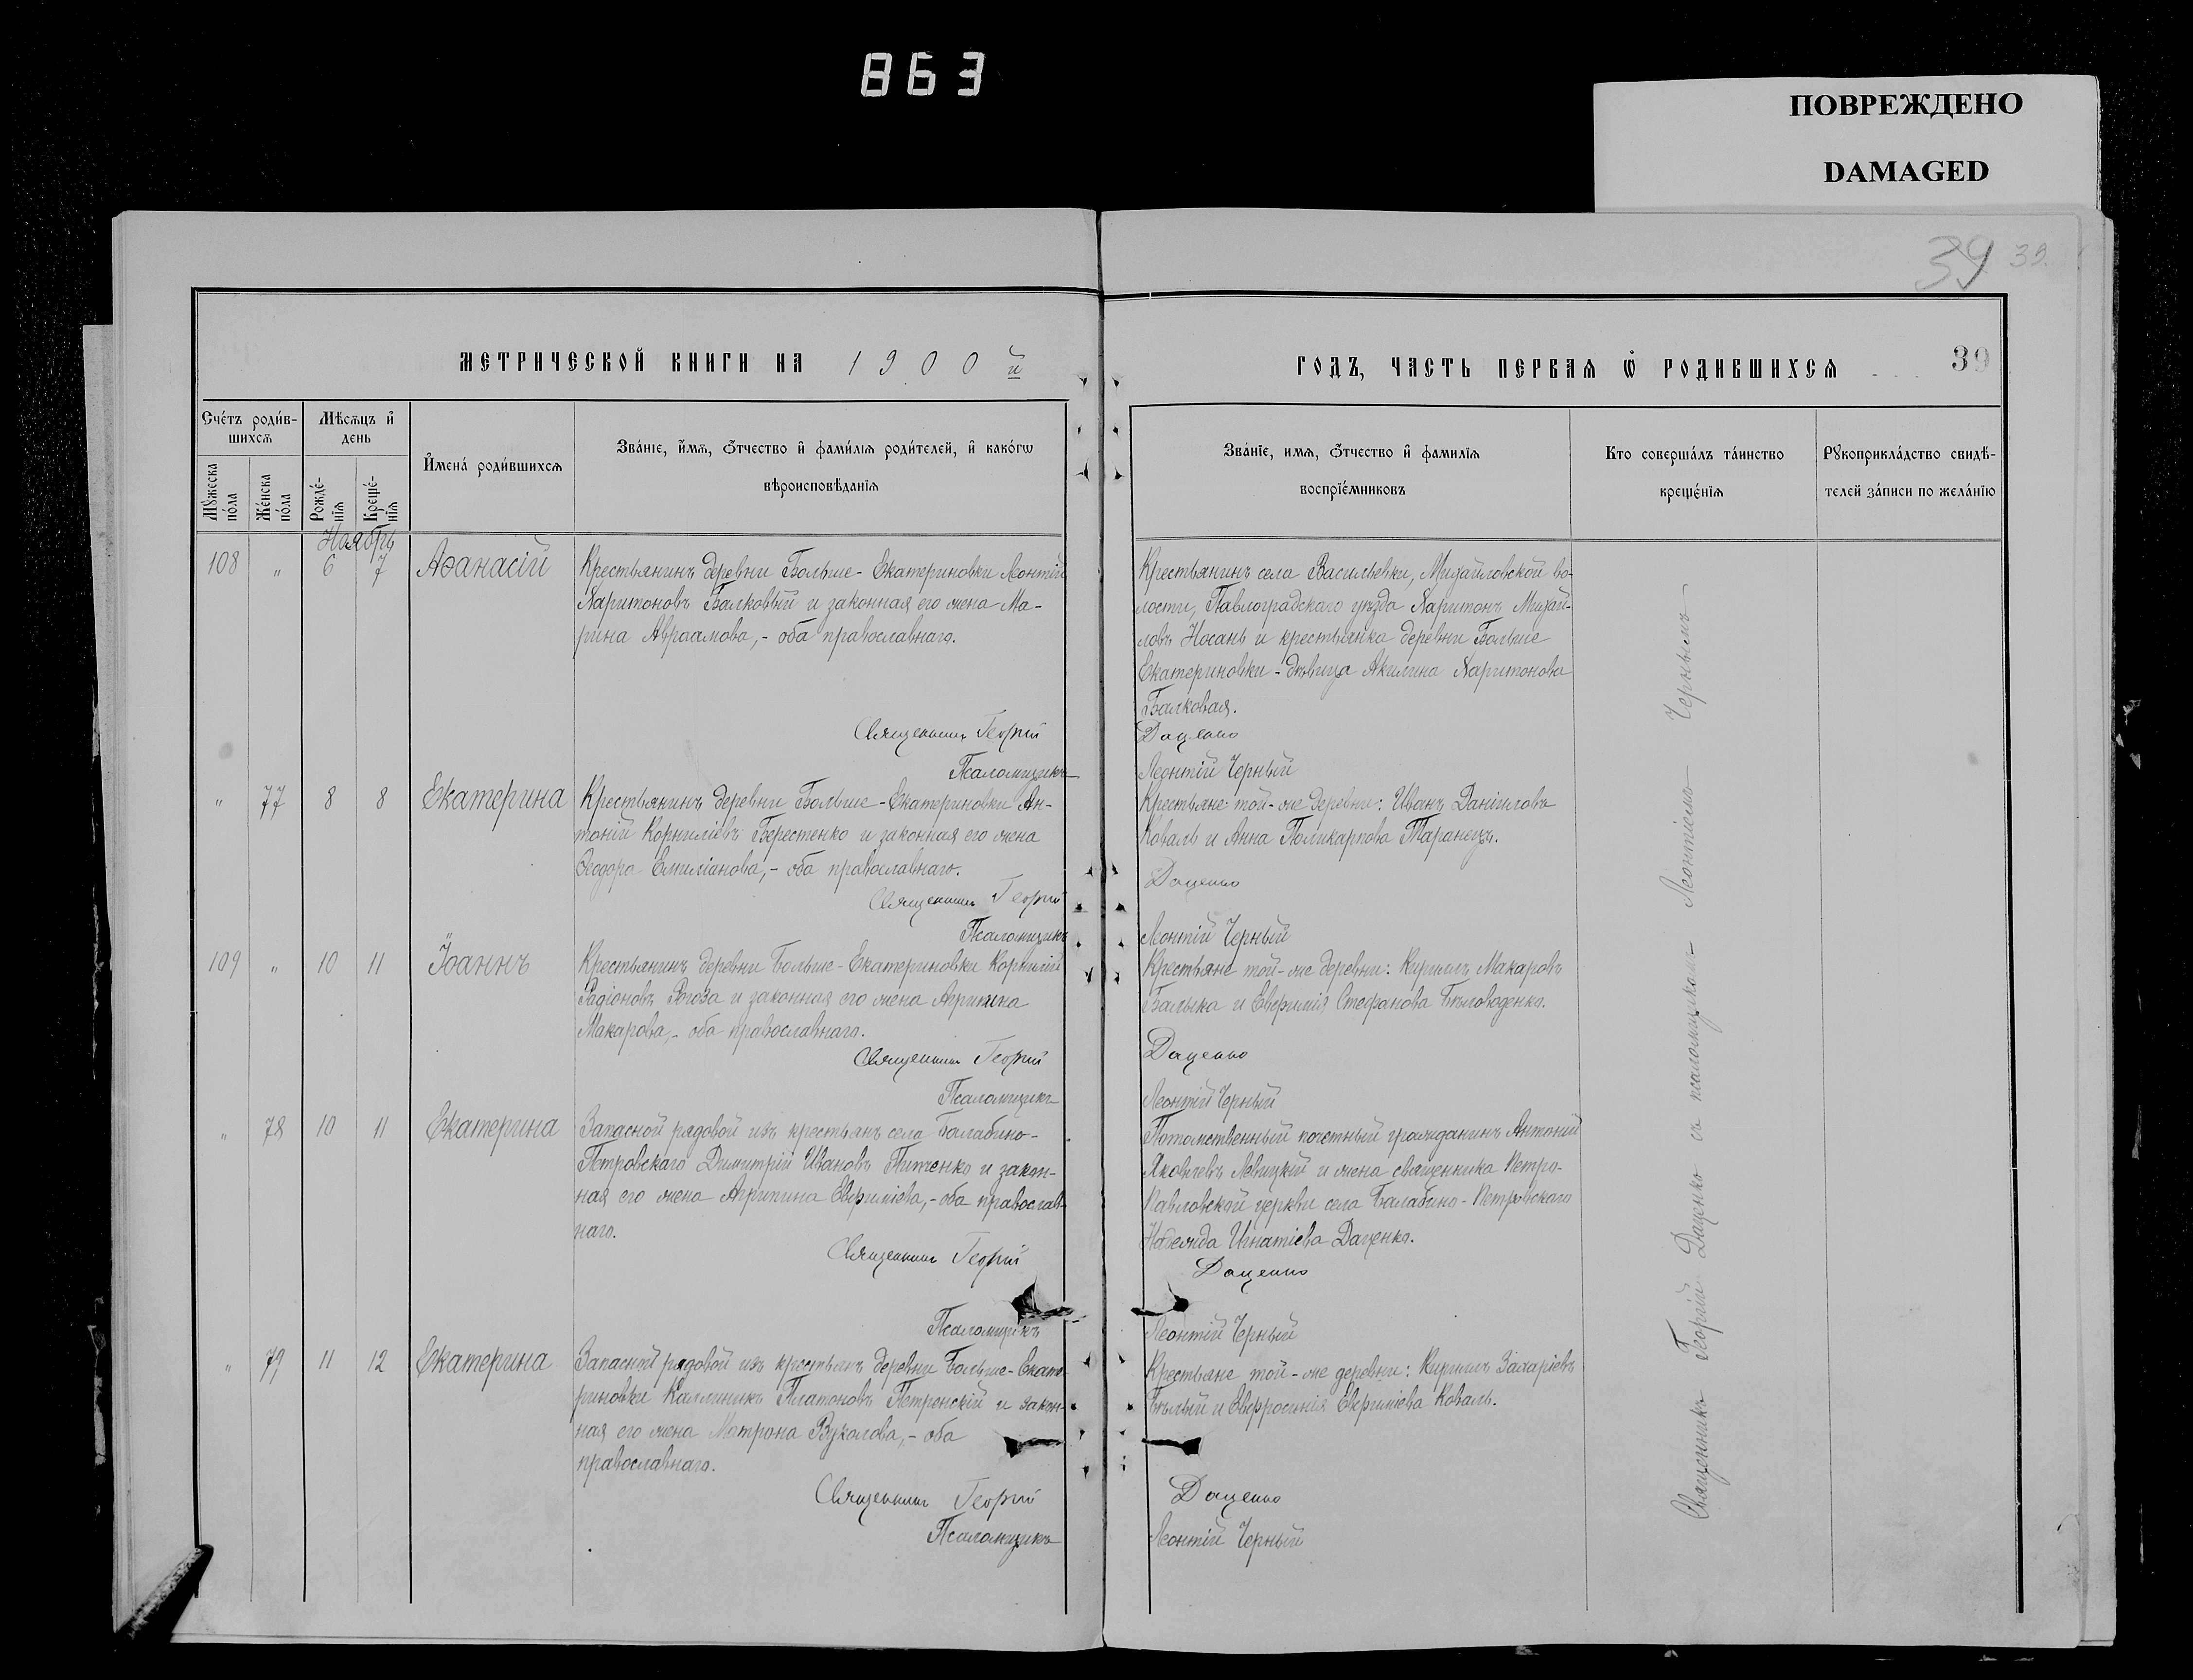 863
ПОВРЕЖДЕНО
DAMAGED
39 39.
МЕТРИЧЕСКОЙ КНИГИ НА 1900й
ГОДЪ, ЧАСТЬ ПЕРВАЯ Ѿ РОДИВШИХСЯ 39
Счетъ родив-
шихся
Мѣсяцъ и
день
Мужеска
пола
Женска
пола
Рожде-
нія
Креще-
нія
Имена родившихся
Званіе, имя, отчество и фамилія родителей, и какогω
вѣроисповѣданія
Званіе, имя, отчество и фамилія
воспріемниковъ
Кто совершалъ таинство
крещенія
Рукоприкладство свидѣ-
телей записи по желанію
Ноябрь
108 „ 6 7 Аѳанасій
Крестьянинъ деревни Больше-Екатериновки Леонтій
Харитоновъ Балковый и законная его жена Ма-
рина Авраамова,- оба православнаго.
Крестьянинъ села Васильевки, Михайловской во-
лости, Павлоградскаго уѣзда Харитонъ Михай-
ловъ Носань и крестьянка деревни Больше
Екатериновки - дѣвица Акилина Харитонова
Балковая.
Священникъ Георгій Даценко
Псаломщикъ Леонтій Черный
„ 77 8 8 Екатерина
Крестьянинъ деревни Больше-Екатериновки Ан-
тоній Корниліевъ Берестенко и законная его жена
Ѳеодора Емиліанова,- оба православнаго.
Крестьяне той-же деревни: Иванъ Даніиловъ
Коваль и Анна Поликарпова Таранецъ.
Священникъ Георгій Даценко
Псаломщикъ Леонтій Черный
109 „ 10 11 Іоаннъ
Крестьянинъ деревни Больше-Екатериновки Корнилій
Радіоновъ Рогоза и законная его жена Агрипина
Макарова,- оба православнаго.
Крестьяне той-же деревни: Кириллъ Макаровъ
Балыка и Евфимія Стефанова Бѣловоденко.
Священникъ Георгій Даценко
Псаломщикъ Леонтій Черный
„ 78 10 11 Екатерина
Запасной рядовой изъ крестьянъ села Балабино-
Петровскаго Димитрій Ивановъ Питенко и закон-
ная его жена Агрипина Евфиміева,- оба православ-
наго.
Потомственный почетный гражданинъ Антоній
Яковлевъ Левицкій и жена священника Петро-
Павловской церкви села Балабино-Петровскаго
Надежда Игнатіева Даценко.
Священникъ Георгій Даценко
Псаломщикъ Леонтій Черный
„ 79 11 12 Екатерина
Запасной рядовой изъ крестьянъ деревни Больше-Екате-
риновки Каллиникъ Платоновъ Петренскій и закон-
ная его жена Матрона Вуколова,- оба
православнаго.
Крестьяне той-же деревни: Кириллъ Захаріевъ
Бѣлый и Евфросинія Евфиміева Коваль.
Священникъ Георгій Даценко
Псаломщикъ Леонтій Черный
Священникъ Георгій Даценко съ псаломщикомъ Леонтіемъ Чернымъ